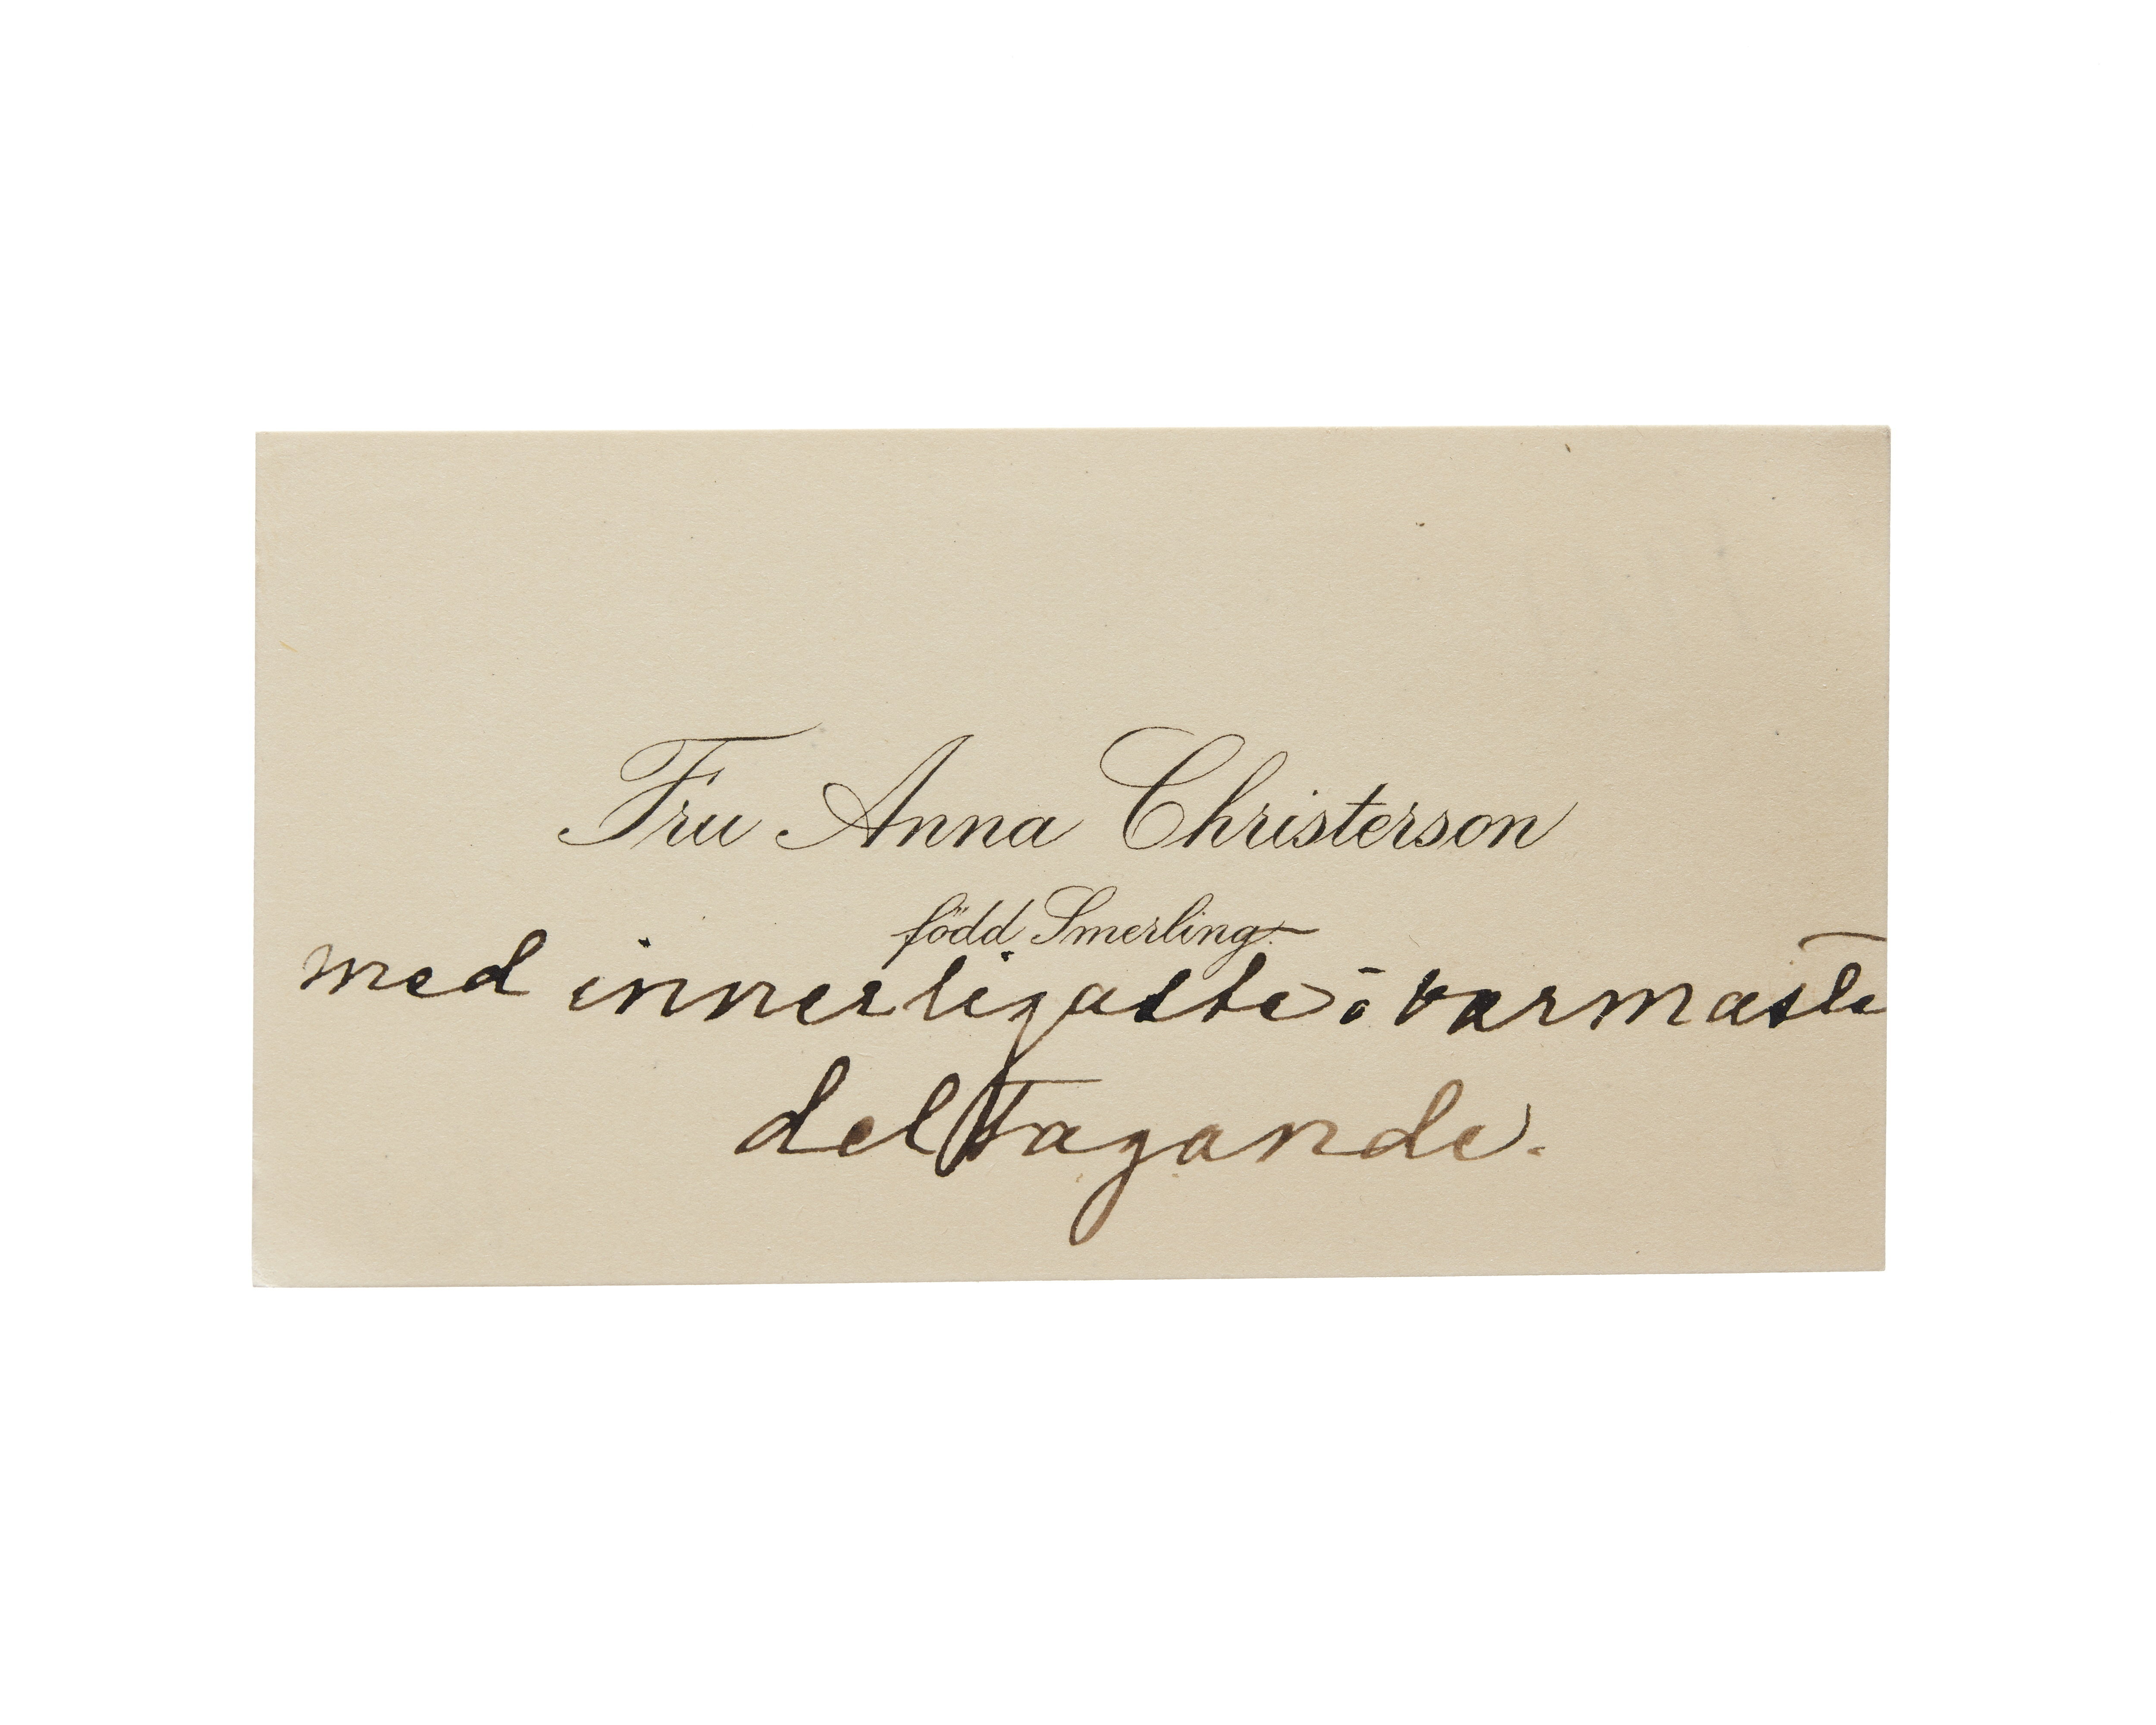 Fru Anna Christerson
född Smerling.
med innerligaste o varmaste
deltagande.